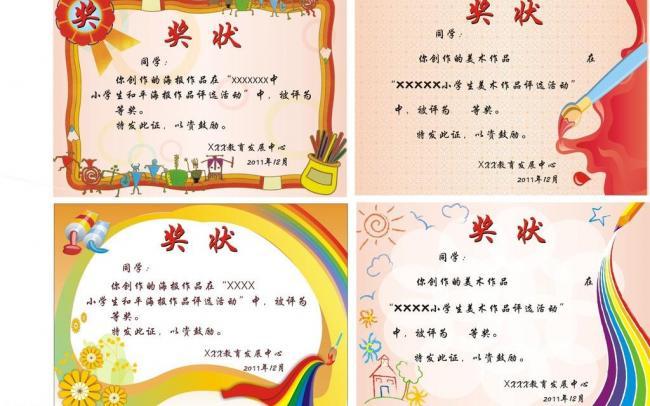 奖
奖 状
同学：
你创作的海报作品在“XXXXXXX中
小学生和平海报作品评选活动”中，被评为
等奖。
特发此证，以资鼓励。
XXX教育发展中心
2011年12月
奖 状
同学：
你创作的美术作品 在
“XXXXX小学生美术作品评选活动”
中，被评为 等奖。
特发此证，以资鼓励。
XXX教育发展中心
2011年12月
奖 状
同学：
你创作的海报作品在“XXXX
小学生和平海报作品评选活动”中，被评为
等奖。
特发此证，以资鼓励。
XXX教育发展中心
2011年12月
奖 状
同学：
你创作的美术作品 在
“XXXX小学生美术作品评选活动”
中，被评为 等奖。
特发此证，以资鼓励。
XXX教育发展中心
2011年12月